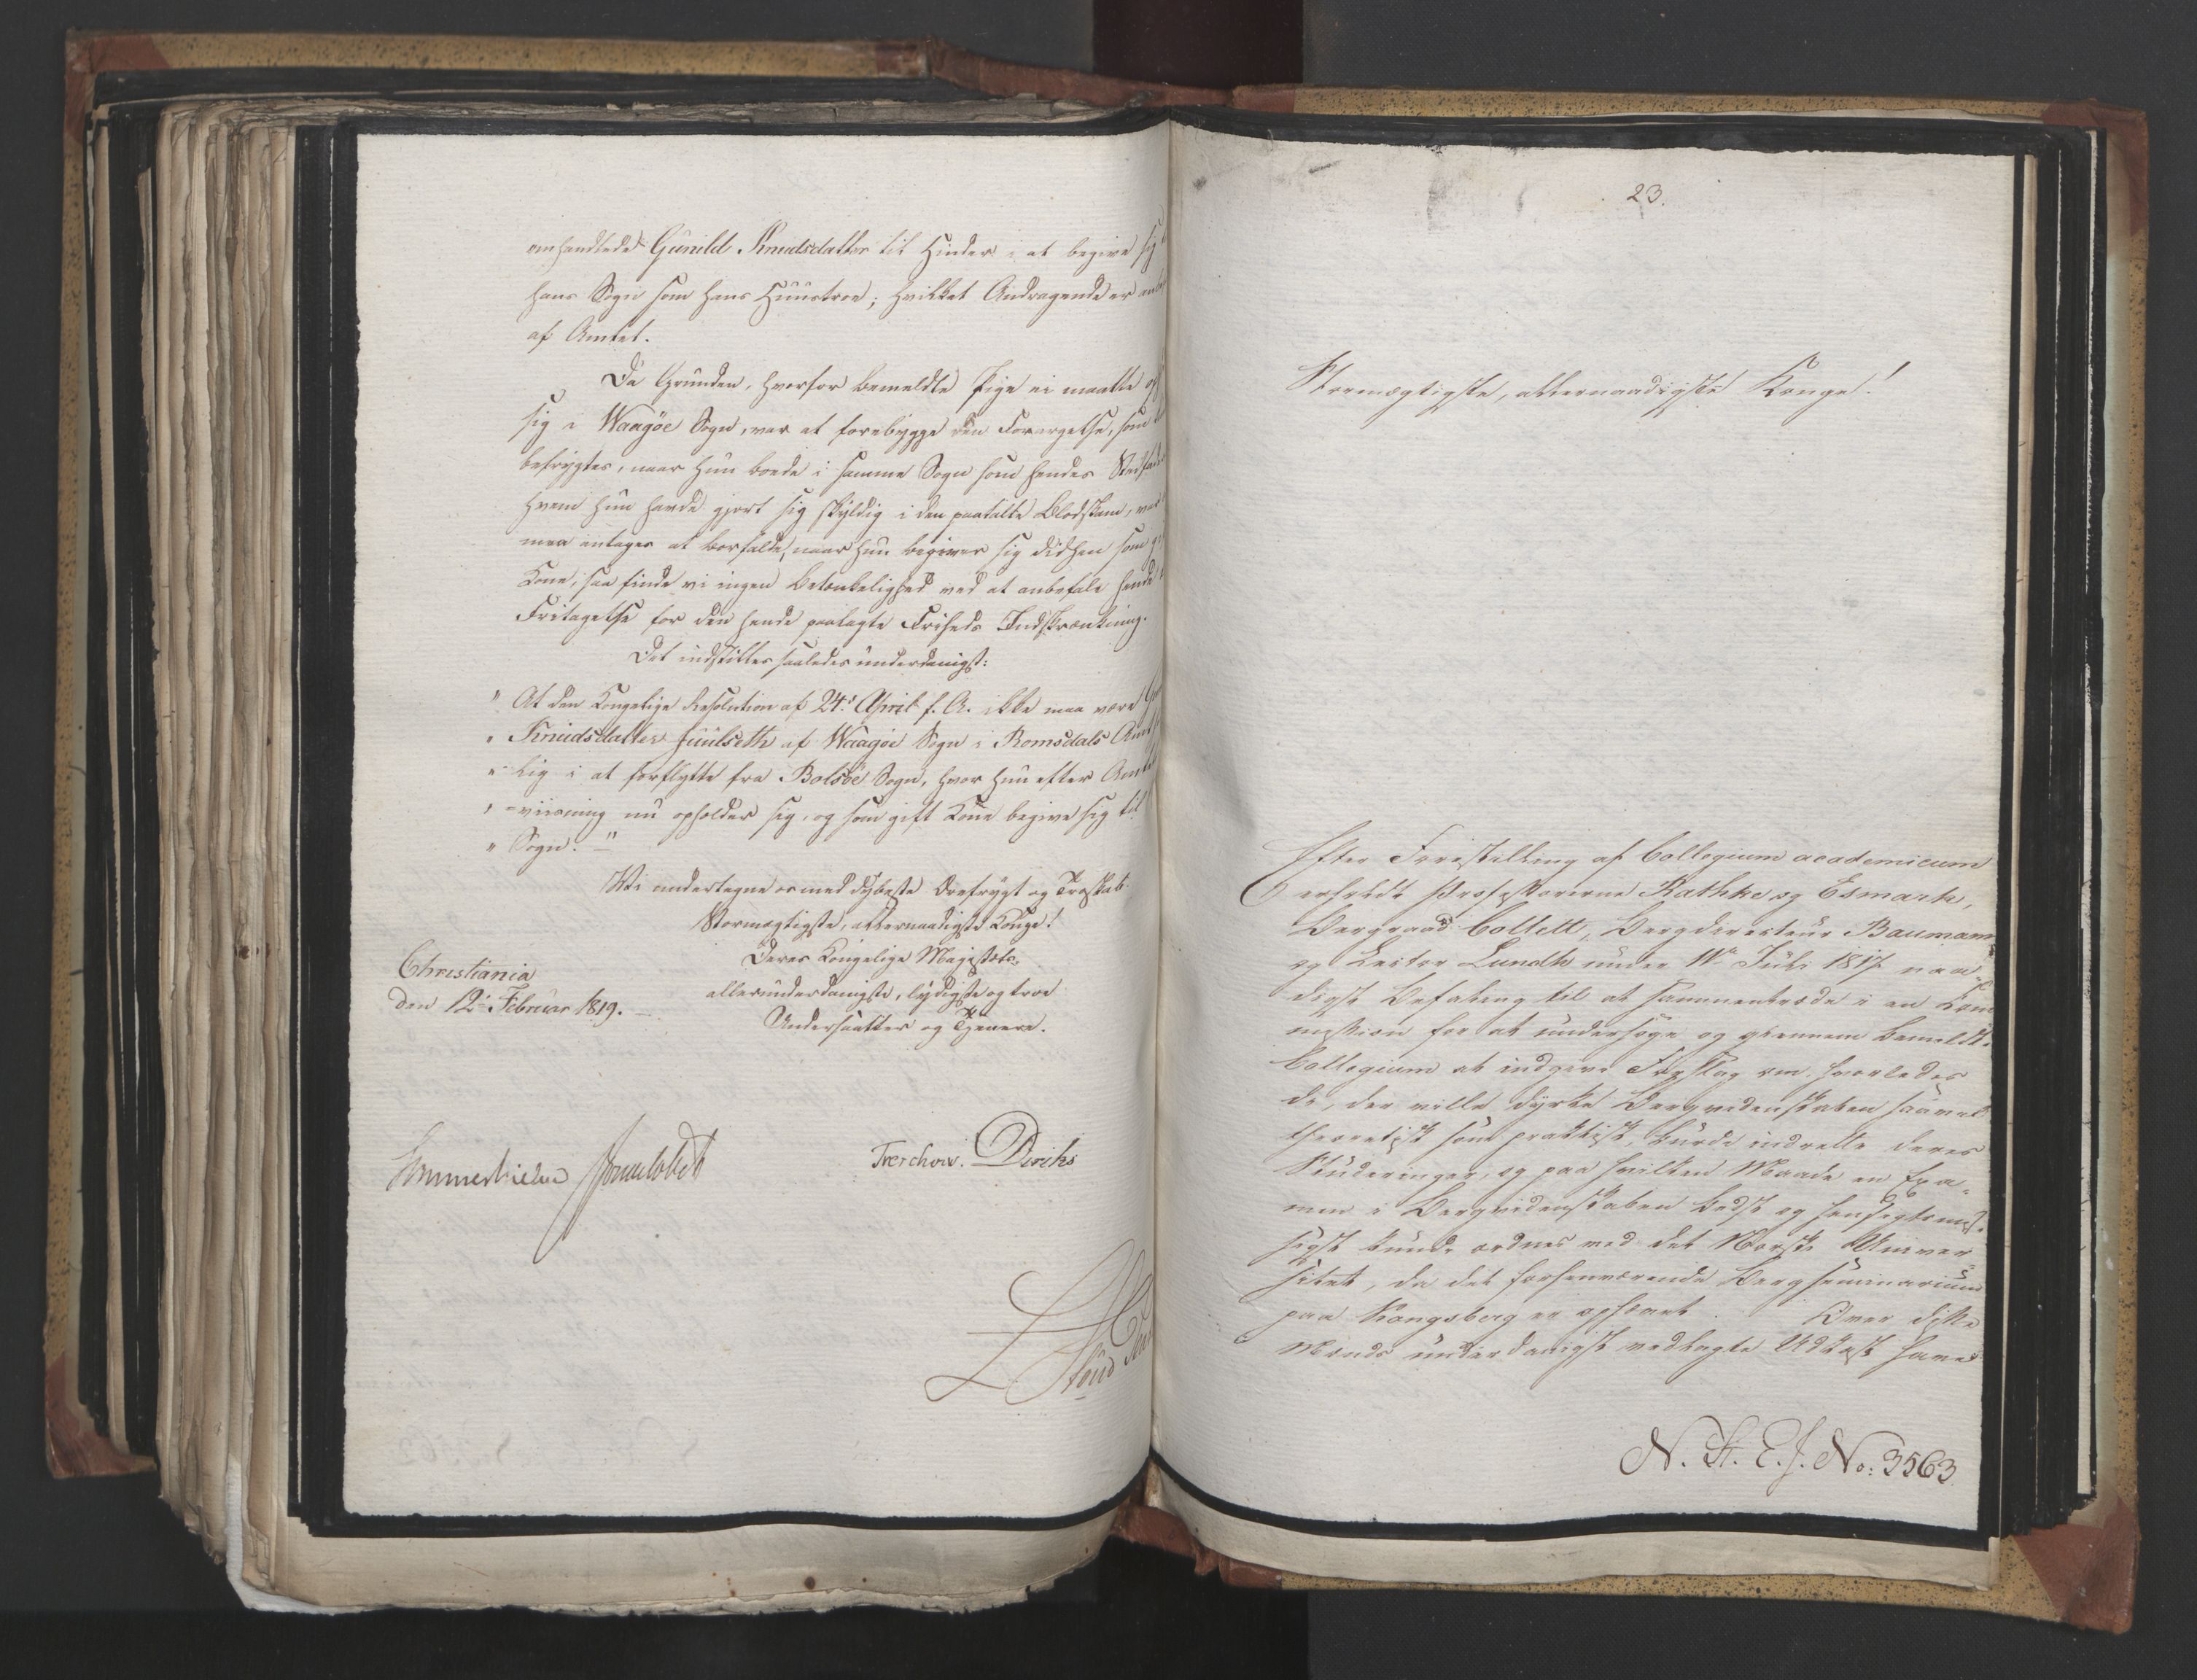 omhandlede Gunild Knudsdatter til Hinder i at begive sig
hans Sogn som hans Huustroe; hvilket Andragende er
af Amtet.
Da Grunden, hvorfor bemeldte Pige ei maatte
sig i Waagöe Sogn, var at forebygge den Forargelse, som
befrygtes, naar hun boede i samme Sogn som hendes
hvem hun havde gjort sig skyldig i den paatalte Blodskam,
maa antages at bortfalde, naar hun begiver sig didhen som
Kone, saa finde vi ingen Betænkelighed ved at anbefale hende
Fritagelse for den hende paalagte Friheds Indskrænkning.
Det indstilles saaledes underdanigst:
" At den Kongelige Resolution af 24de April f. A. ikke maa være
" Knudsdatter Juulseth af Waagöe Sogn i Romsdals Amt
" lig i at forflytte fra Bolsöe Sogn, hvor hun efter
" =viisning nu opholder sig, og som gift Kone begive sig til
" Sogn."
Vi undertegne os med dybeste Ærefrygt og Troskab
Stormægtigste, allernaadigste Konge!
Deres Kongelige Majestæts
allerunderdanigste, lydigste og troe
Undersaatter og Tjenere.
Christiania
den 12te Februar 1819.
Sommerhielm Treschow. Diriks
23.
Stormægtigste, allernaadigste Konge!
Efter Forestilling af Collegium academicum
erholdt Professorerne Rathke og Esmark,
Bergraad Collett, Bergdirecteur Baumann
og Lector Lundh under 11te Juli 1817 naa=
digst Befaling til at sammentræde i en Com
mission for at undersöge og giennem bemeldte
Collegium at indgive Forslag om, hvorledes
de, der ville dyrke Bergvidenskaben saavel
theoretisk som praktisk, burde indrette deres
Studeringer, og paa hvilken Maade en Exa=
men i Bergvidenskaben bedst og hensigtsmæs=
sigst kunde ordnes ved det Norske Univer=
sitet, da det forhenværende Bergseminarium
paa Kongsberg er ophævet. Over disse
Mænds underdanigst vedlagte Udkast haver
N. St. E. J. No: 3563